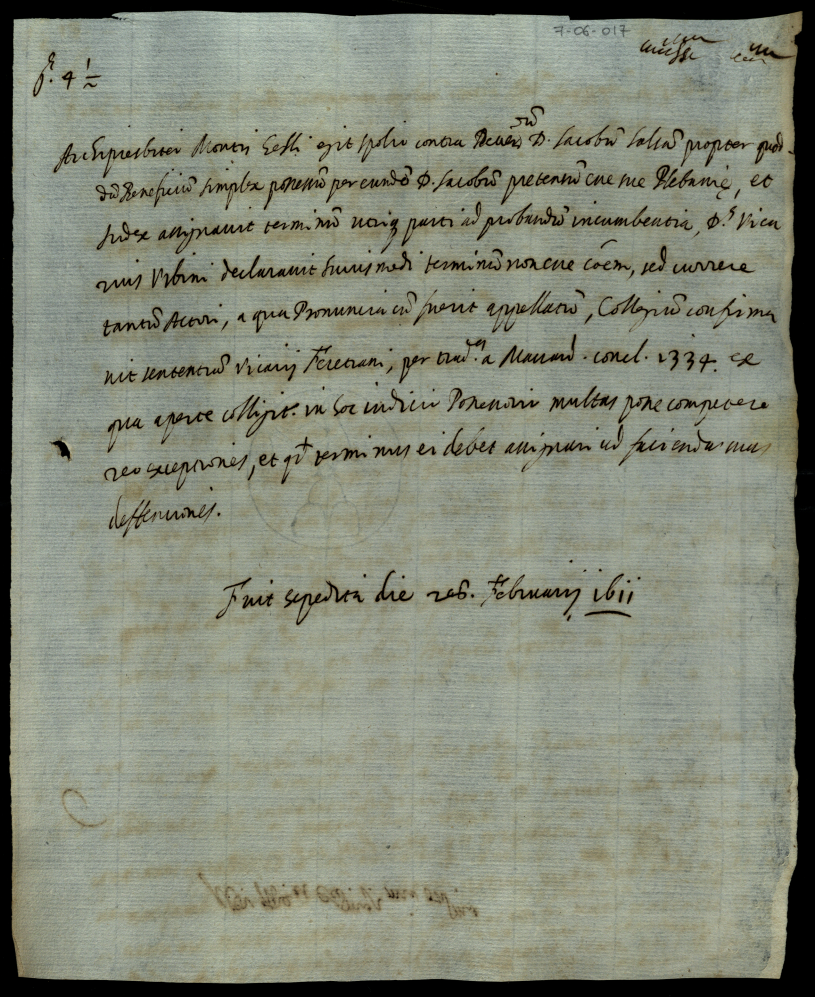 7-06-017
fe. 4 1
Archipresbiter Montis Celli egit spolii contra Reveren dũ D. Jacobũ Salsã propter quod-
dã Beneficiũ simplex possessũ per eundẽ D. Jacobũ pretensũ esse sue Plebanię, et
Judex assignavit terminũ utriq parti ad probandũ incumbentia, D.s Vica
rius Urbini declaravit huiusmodi terminũ non esse cõem, sed currere
tantũ Actori, a qua Pronuncia cũ fuerit appellatũ, Collegiũ confirma
vit sententiã Vicarij Feretrani, per trad.a a Mascard. concl. 1334. ex
qua aperte colligit. in hoc iudicii Possessorii multas posse competere
reo exceptiones, et qđ terminus ei debet assignari ad faciendas suas
deffensiones.
Fuit expedita die 26. Februarij 1611